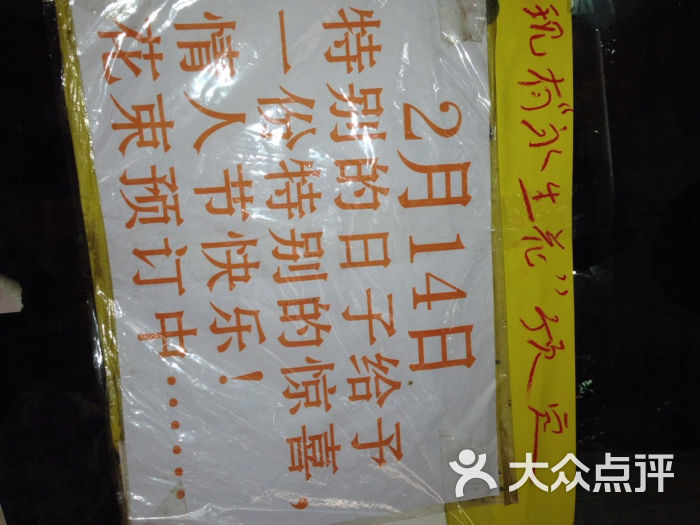 现有“永生花”预定
2月14日
特别的日子给予
一份特别的惊喜，
情人节快乐！
花束预订中……
大众点评